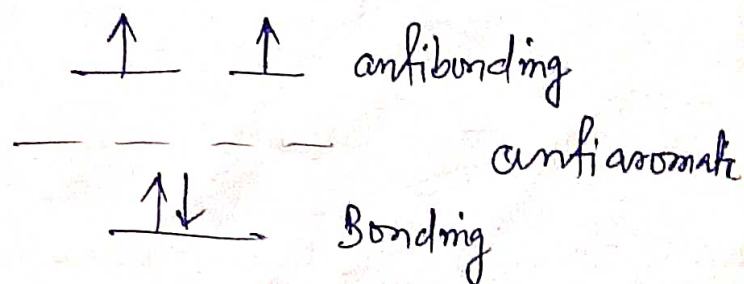 antibonding
antiaromatic
Bonding